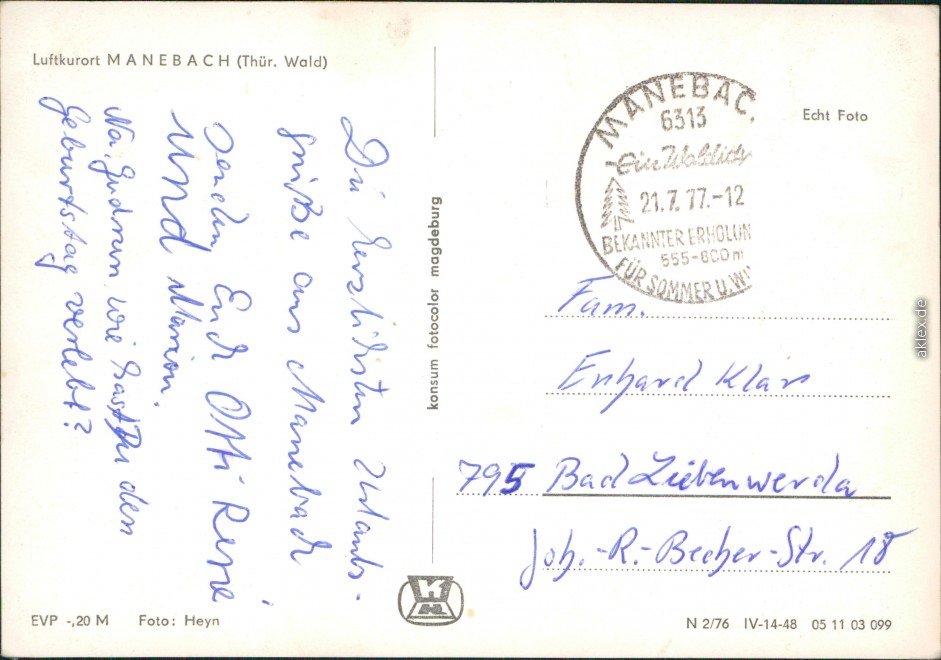 Luftkurort MANEBACH (Thür. Wald)
Die herzlichsten Urlaubs-
grüße aus Manebach
senden Euch Otti, Rene
und Marion.
Na, Gudrun, wie hast Du den
Geburtstag verlebt?
konsum fotocolor magdeburg
MANEBAC
6313
21.7.77.-12
BEKANNTER ERHOLUN
555-800m
FÜR SOMMER U. WI
Echt Foto
Fam.
Erhard Klär
795 Bad Liebenwerda
Joh.-R.-Becher-Str. 18
EVP -,20 M Foto: Heyn
N 2/76 IV-14-48 05 11 03 099
aklex.de